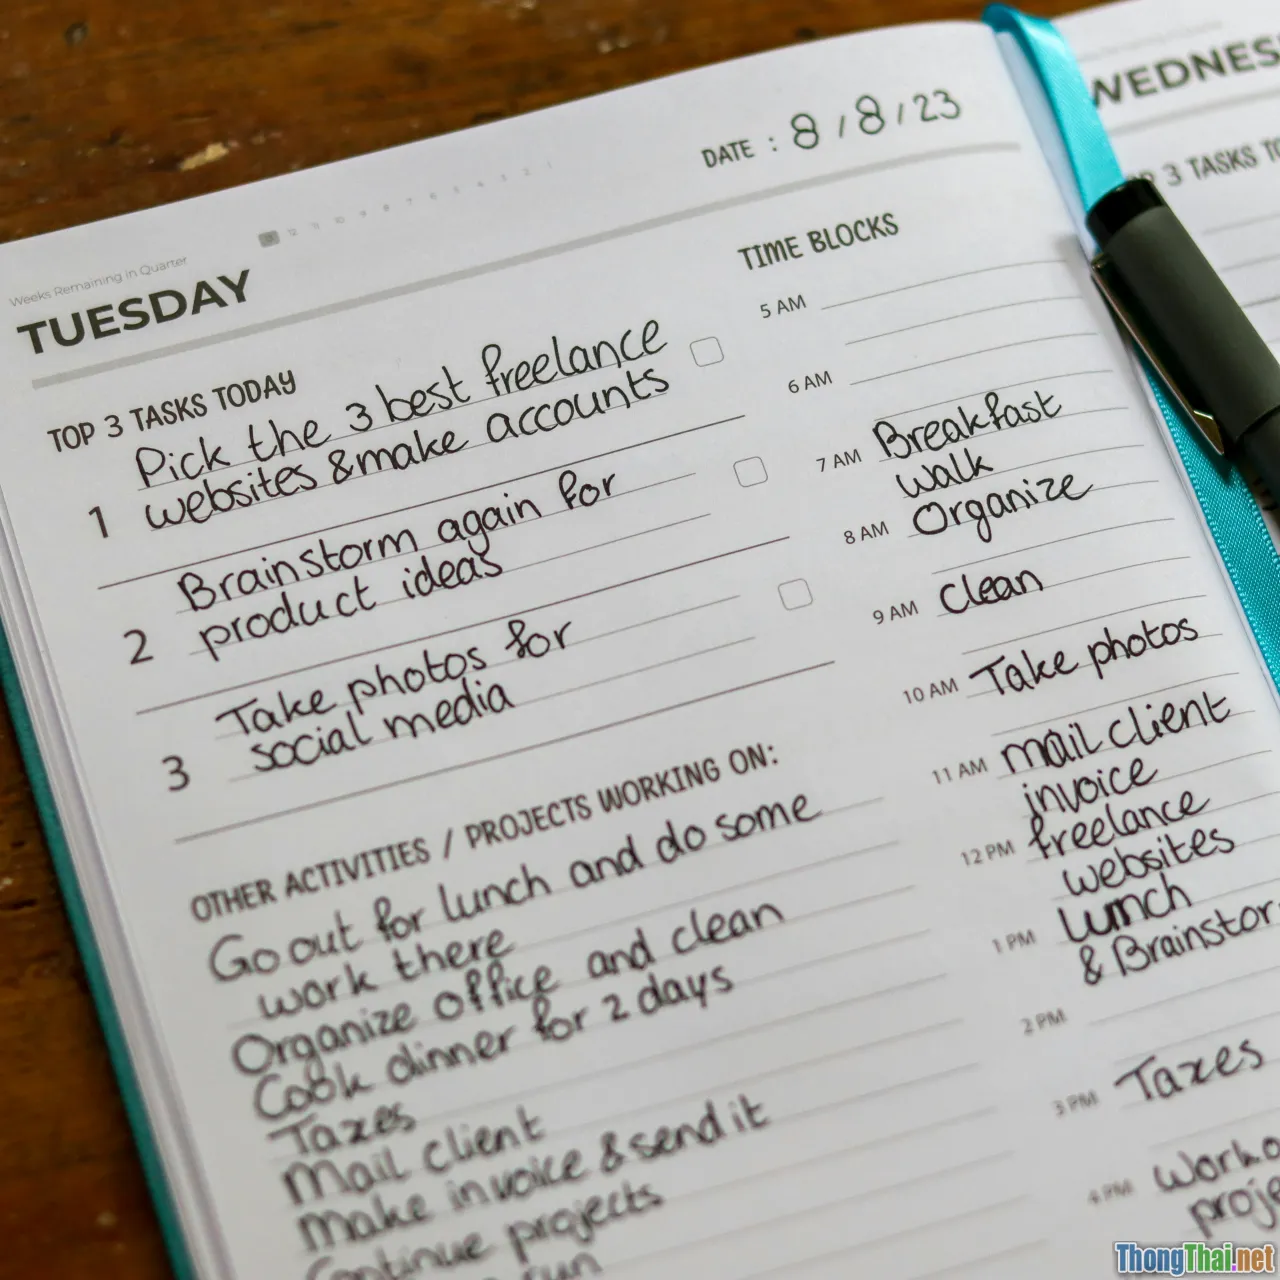 Weeks Remaining in Quarter
TUESDAY
DATE : 8 / 8 / 23
TOP 3 TASKS TODAY
1 Pick the 3 best freelance
websites & make accounts
2 Brainstorm again for
product ideas
3 Take photos for
social media
OTHER ACTIVITIES / PROJECTS WORKING ON:
Go out for lunch and do some
work there
Organize office and clean
Cook dinner for 2 days
Taxes
Mail client
Make invoice & send it
Continue projects
run
TIME BLOCKS
5 AM
6 AM
7 AM Breakfast
walk
8 AM Organize
9 AM Clean
10 AM Take photos
11 AM mail client
invoice
12 PM freelance
websites
1 PM lunch
& Brainstor
2 PM
3 PM Taxes
4 PM Worko
proje
WEDNES
3 TASKS TO
ThongThai.net